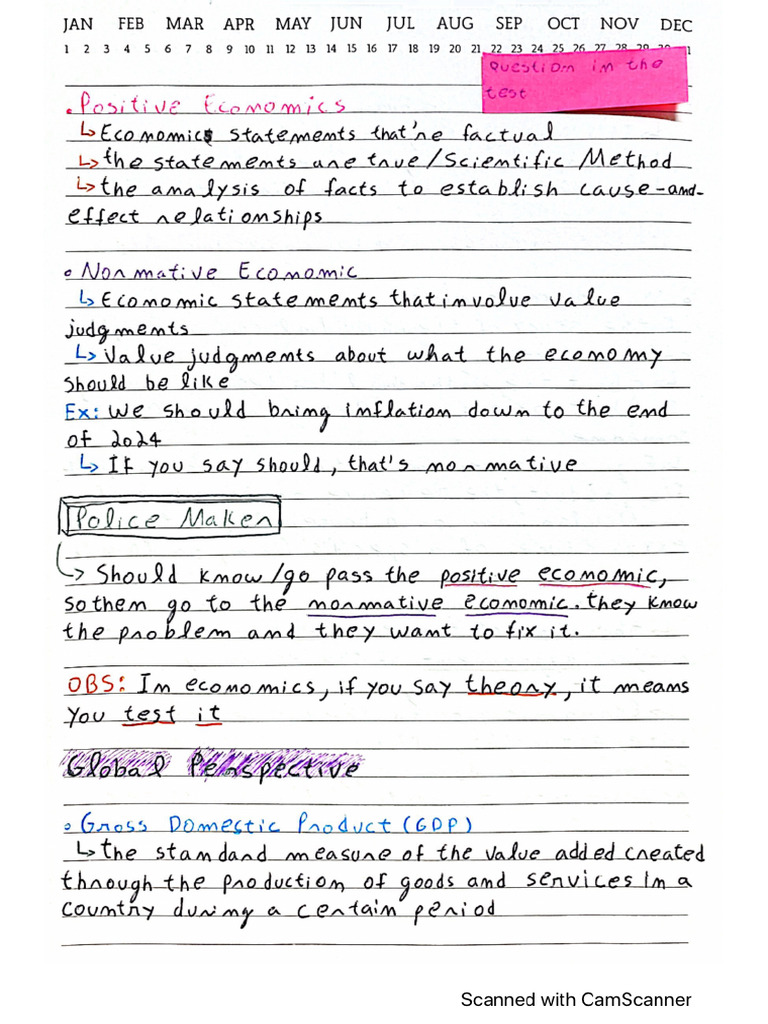 JAN FEB MAR APR MAY JUN JUL AUG SEP OCT NOV DEC
1 2 3 4 5 6 7 8 9 10 11 12 13 14 15 16 17 18 19 20 21 22 23 24 25 26 27 28 29 30 1
Question in the
test
• Positive Economics
↳ Economics statements that're factual
↳ the statements are true/Scientific Method
↳ the analysis of facts to establish cause-and-
effect relationships
• Normative Economic
↳ Economic statements that involve value
judgments
↳ Value judgments about what the economy
should be like
Ex: we should bring inflation down to the end
of 2024
↳ If you say should, that's normative
Police Maker
↳ Should know/go pass the positive economic,
so them go to the normative economic. they know
the problem and they want to fix it.
OBS: In economics, if you say theory, it means
you test it
Global Perspective
• Gross Domestic Product (GDP)
↳ the standard measure of the value added created
through the production of goods and services in a
country during a certain period
Scanned with CamScanner